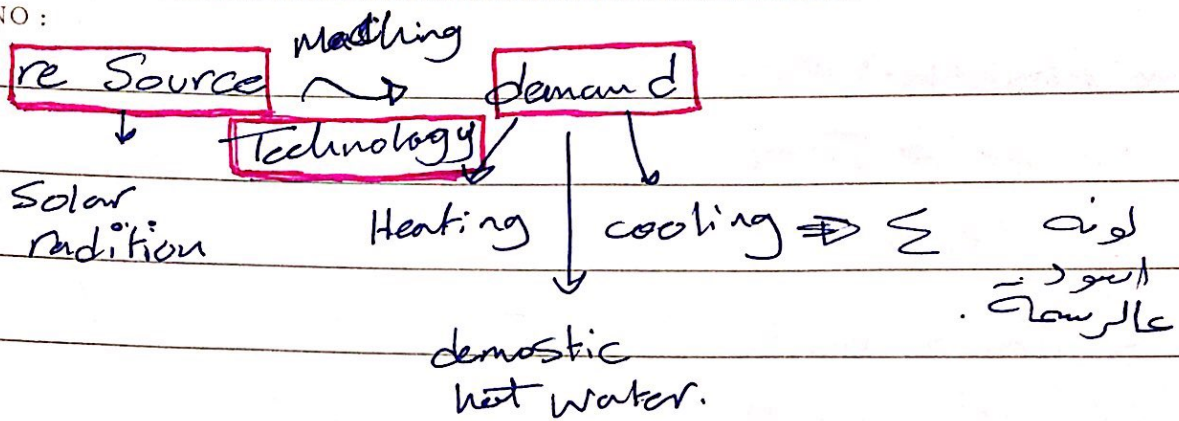 NO :
Matching
re Source demand
Technology
Solar
radition
Heating cooling ⇒ Σ لونه
اسود
عالرسمة .
demostic
hot water.